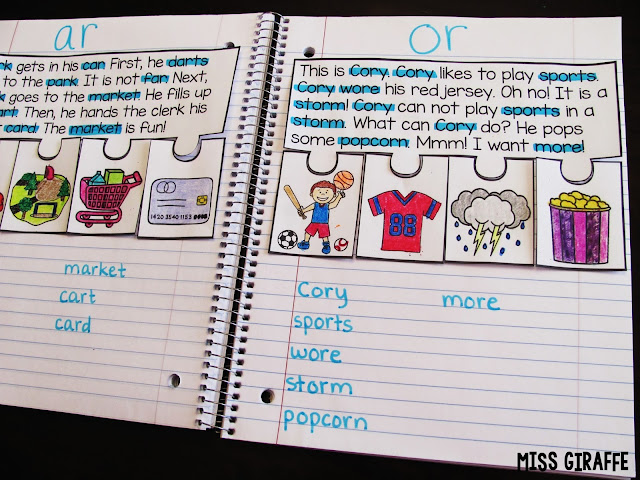 ar
gets in his car. First, he darts
to the park. It is not far. Next,
goes to the market. He fills up
Then, he hands the clerk his
card. The market is fun!
1420 3540 1153
market
cart
card
or
This is Cory. Cory likes to play sports.
Cory wore his red jersey. Oh no! It is a
storm! Cory can not play sports in a
storm. What can Cory do? He pops
some popcorn. Mmm! I want more!
88
Cory more
sports
wore
storm
popcorn
MISS GIRAFFE